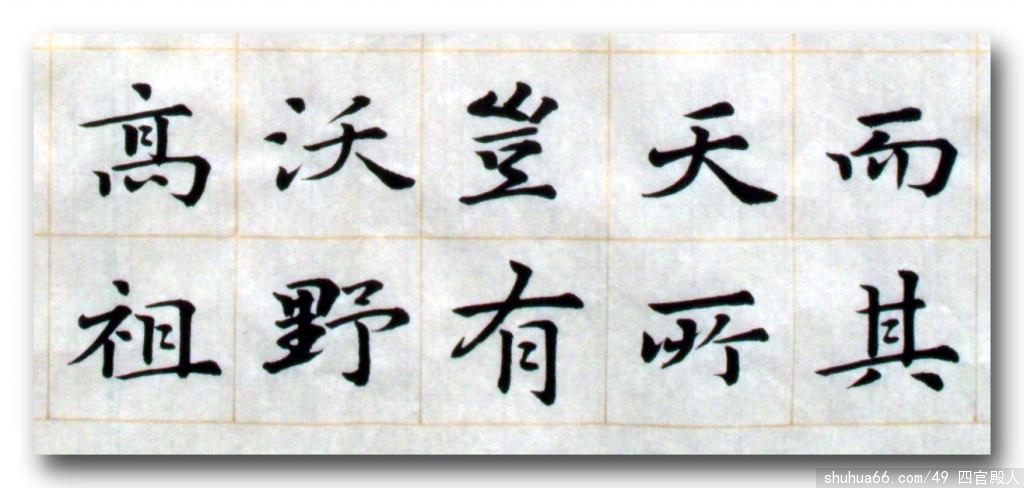 而其
天所
豈有
沃野
高祖
shuhua66.com/49 四官殿人